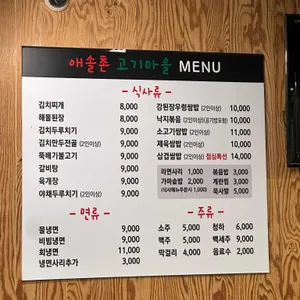 애솔촌 고기마을 MENU
- 식사류 -
김치찌개 8,000
해물된장 8,000
김치두루치기 9,000
김치만두전골(2인이상) 9,000
뚝배기불고기 9,000
갈비탕 9,000
육개장 9,000
야채두루치기(2인이상) 9,000
강된장우렁쌈밥(2인이상) 10,000
낙지볶음(2인이상)(공기밥포함) 10,000
소고기쌈밥(2인이상) 10,000
제육쌈밥(2인이상) 10,000
삼겹쌈밥(2인이상) 점심특선 14,000
라면사리 1,000 볶음밥 3,000
가마솥밥 2,000 계란찜 3,000
(식사메뉴주문시 1,000) 묵사발 5,000
- 면류 -
물냉면 9,000
비빔냉면 9,000
회냉면 11,000
냉면사리추가 3,000
- 주류 -
소주 5,000 청하 6,000
맥주 5,000 백세주 9,000
막걸리 4,000 음료수 2,000